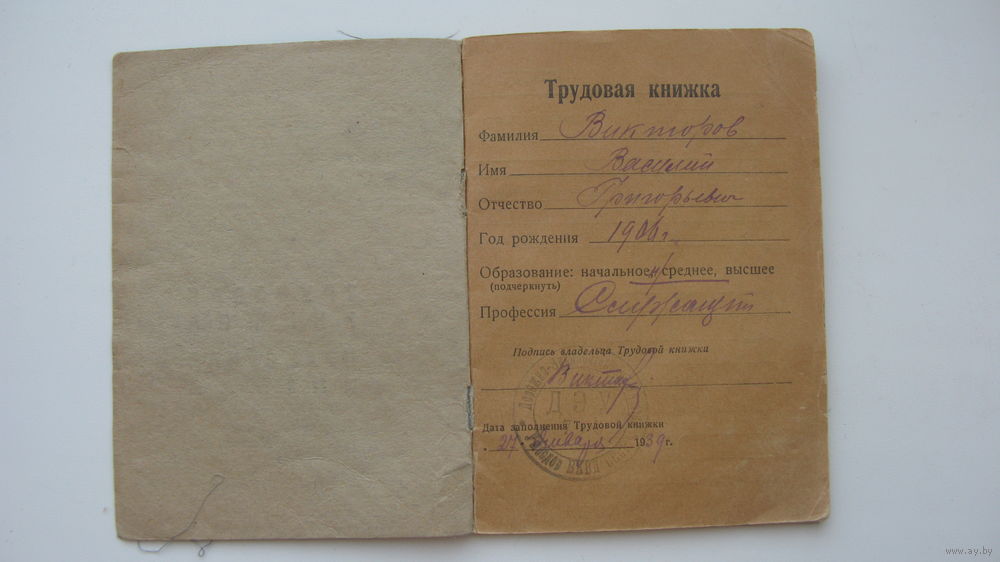 Трудовая книжка
Фамилия Викторов
Имя Василий
Отчество Григорьевич
Год рождения 1906 г.
Образование: начальное, н/среднее, высшее
(подчеркнуть)
Профессия Сержант
Подпись владельца Трудовой книжки
Викторов
Дата заполнения Трудовой книжки
27 января 1939 г.
НКВД
www.ay.by